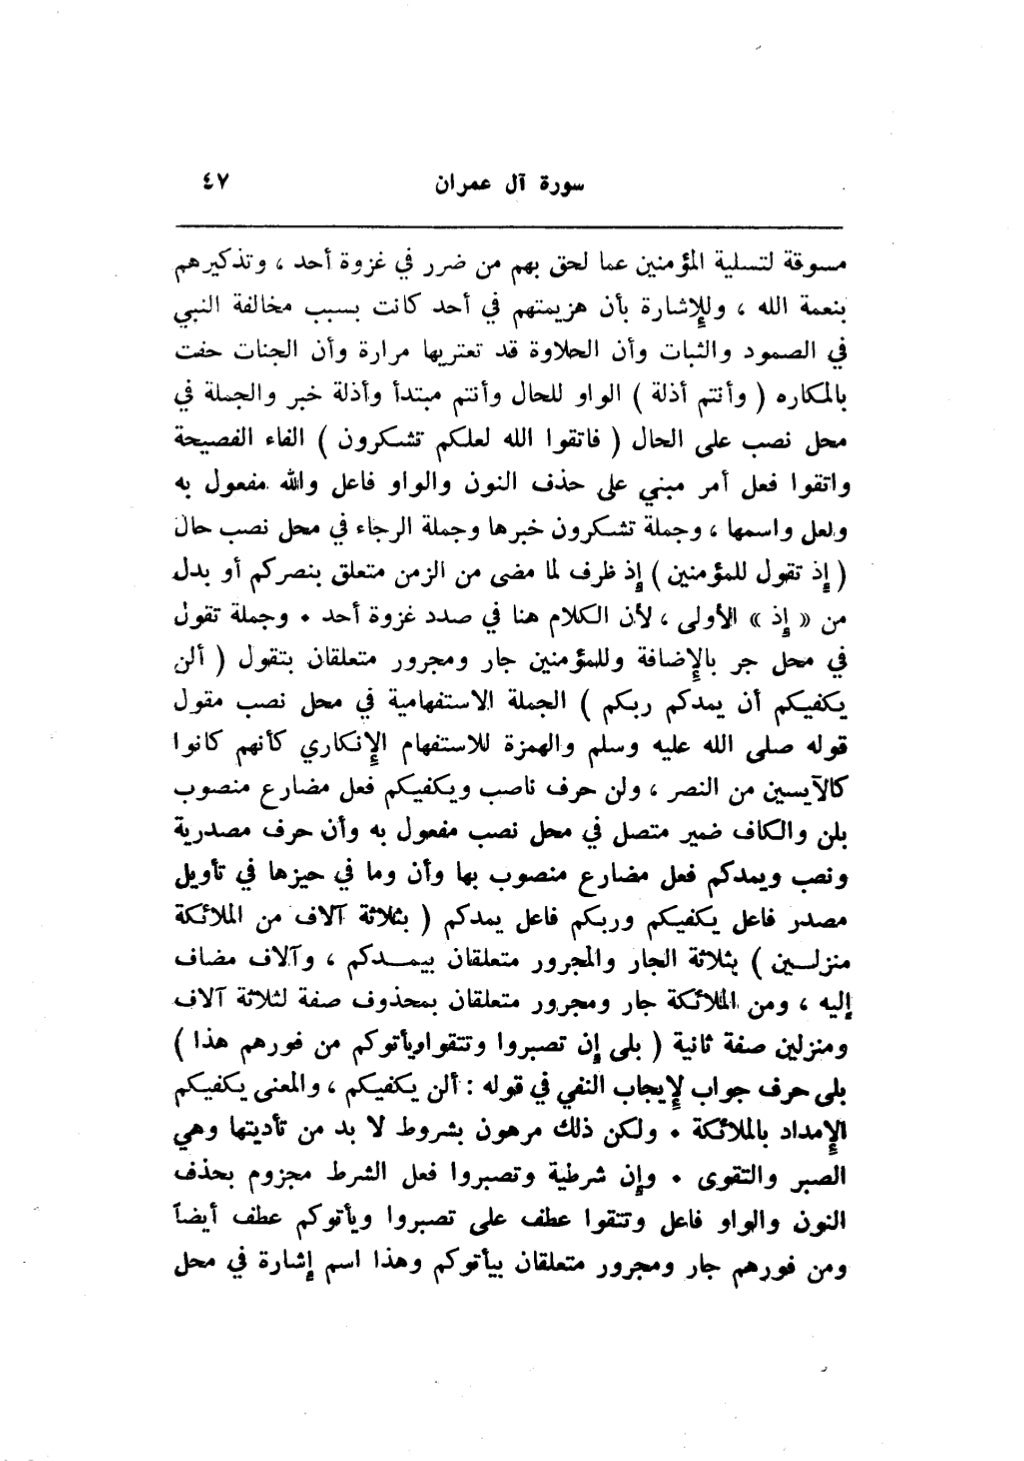 سورة آل عمران ٤٧
مسوقة لتسلية المؤمنين عما لحق بهم من ضرر في غزوة أحد ، وتذكيرهم
بنعمة الله ، وللإشارة بأن هزيمتهم في أحد كانت بسبب مخالفة النبي
في الصمود والثبات وأن الحلاوة قد تعتريها مرارة وأن الجنات حفت
بالمكاره ( وأنتم أذلة ) الواو للحال وأنتم مبتدأ وأذلة خبر والجملة في
محل نصب على الحال ( فاتقوا الله لعلكم تشكرون ) الفاء الفصيحة
واتقوا فعل أمر مبني على حذف النون والواو فاعل والله مفعول به
ولعل واسمها ، وجملة تشكرون خبرها وجملة الرجاء في محل نصب حال
( إذ تقول للمؤمنين ) إذ ظرف لما مضى من الزمن متعلق بنصركم أو بدل
من « إذ » الأولى ، لأن الكلام هنا في صدد غزوة أحد ٠ وجملة تقول
في محل جر بالإضافة وللمؤمنين جار ومجرور متعلقان بتقول ( ألن
يكفيكم أن يمدكم ربكم ) الجملة الاستفهامية في محل نصب مقول
قوله صلى الله عليه وسلم والهمزة للاستفهام الإنكاري كأنهم كانوا
كالآيسين من النصر ، ولن حرف ناصب ويكفيكم فعل مضارع منصوب
بلن والكاف ضمير متصل في محل نصب مفعول به وأن حرف مصدرية
ونصب ويمدكم فعل مضارع منصوب بها وأن وما في حيزها في تأويل
مصدر فاعل يكفيكم وربكم فاعل يمدكم ( بثلاثة آلاف من الملائكة
منزلـــين ) بثلاثة الجار والمجرور متعلقان بيمـــدكم ، وآلاف مضاف
إليه ، ومن الملائكة جار ومجرور متعلقان بمحذوف صفة لثلاثة آلاف
ومنزلين صفة ثانية ( بلى إن تصبروا وتتقواويأتوكم من فورهم هذا )
بلى حرف جواب لإيجاب النفي في قوله : ألن يكفيكم ، والمعنى يكفيكم
الإمداد بالملائكة ٠ ولكن ذلك مرهون بشروط لا بد من تأديتها وهي
الصبر والتقوى ٠ وإن شرطية وتصبروا فعل الشرط مجزوم بحذف
النون والواو فاعل وتتقوا عطف على تصبروا ويأتوكم عطف أيضاً
ومن فورهم جار ومجرور متعلقان بيأتوكم وهذا اسم إشارة في محل